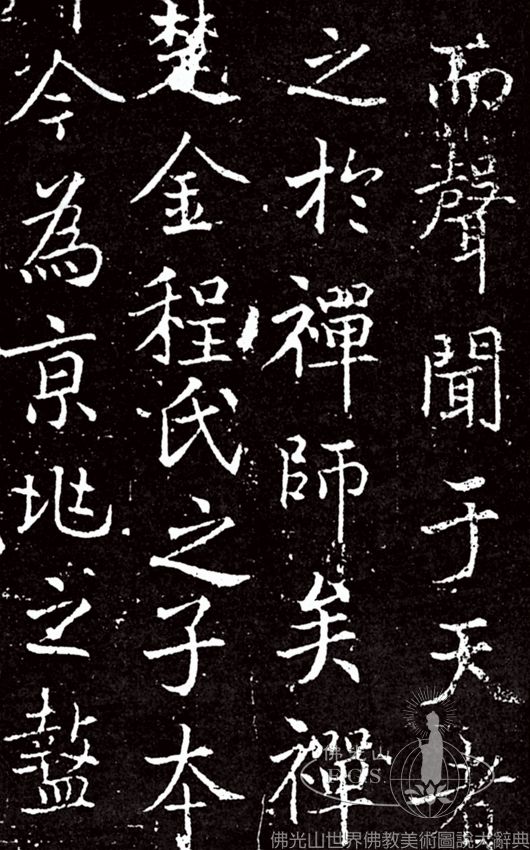 而聲聞于天者
之於禪師矣禪
楚金程氏之子夲
今為亰兆之盩
佛光山
F.G.S
佛光山世界佛教美術圖說大辭典